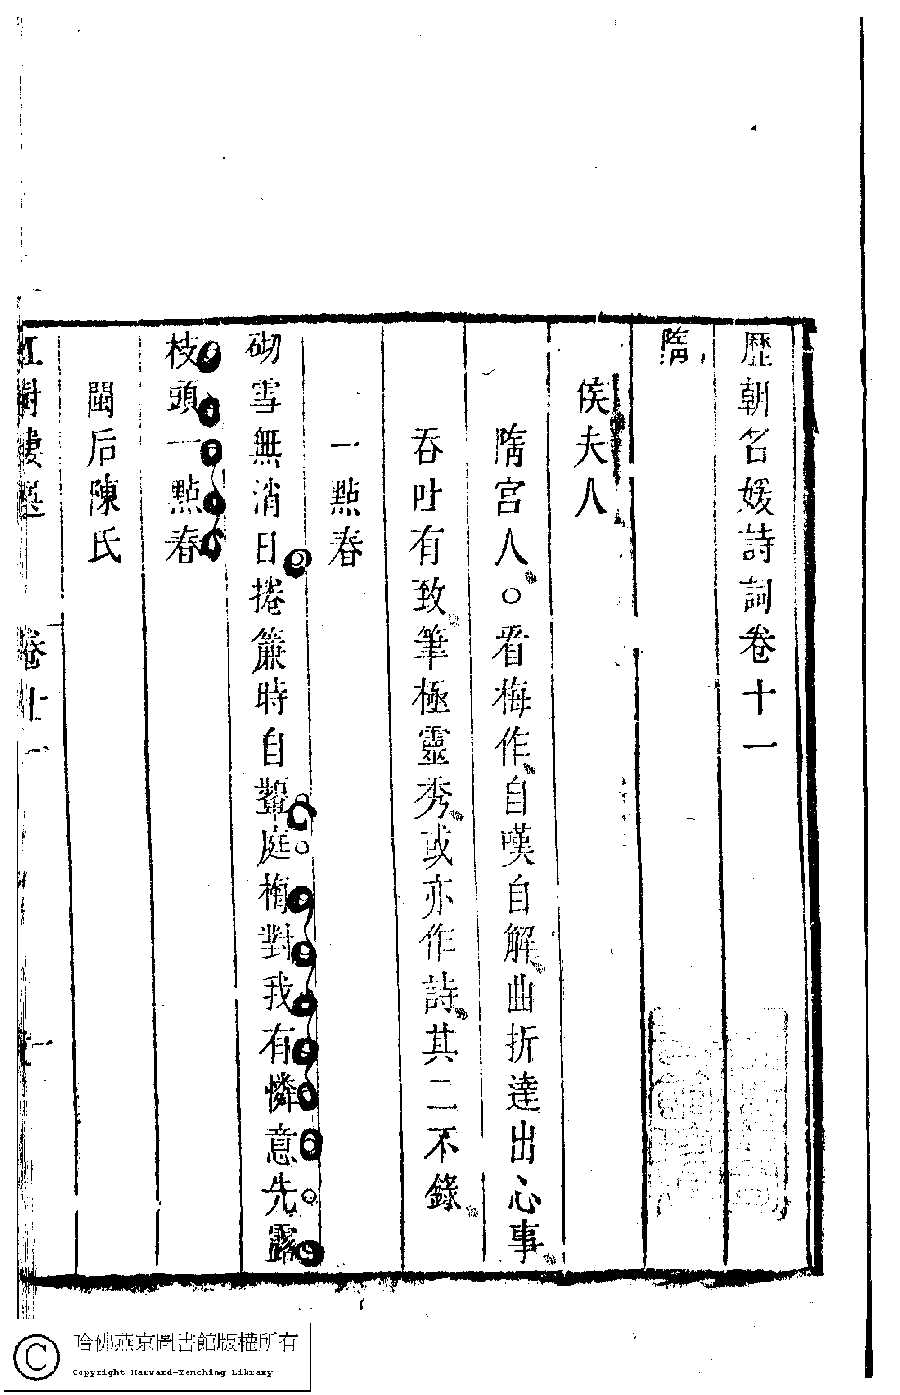 歷朝名媛詩詞卷十一
隋
侯夫人
隋宮人○看梅作自嘆自解曲折達出心事
吞吐有致筆極靈秀或亦作詩其二不錄
一點春
砌雪無消日捲簾時自顰庭梅對我有憐意先露
枝頭一點春
閩后陳氏
紅樹樓選 卷十一 一
哈佛燕京圖書館版權所有
Copyright Harvard-Yenching Library